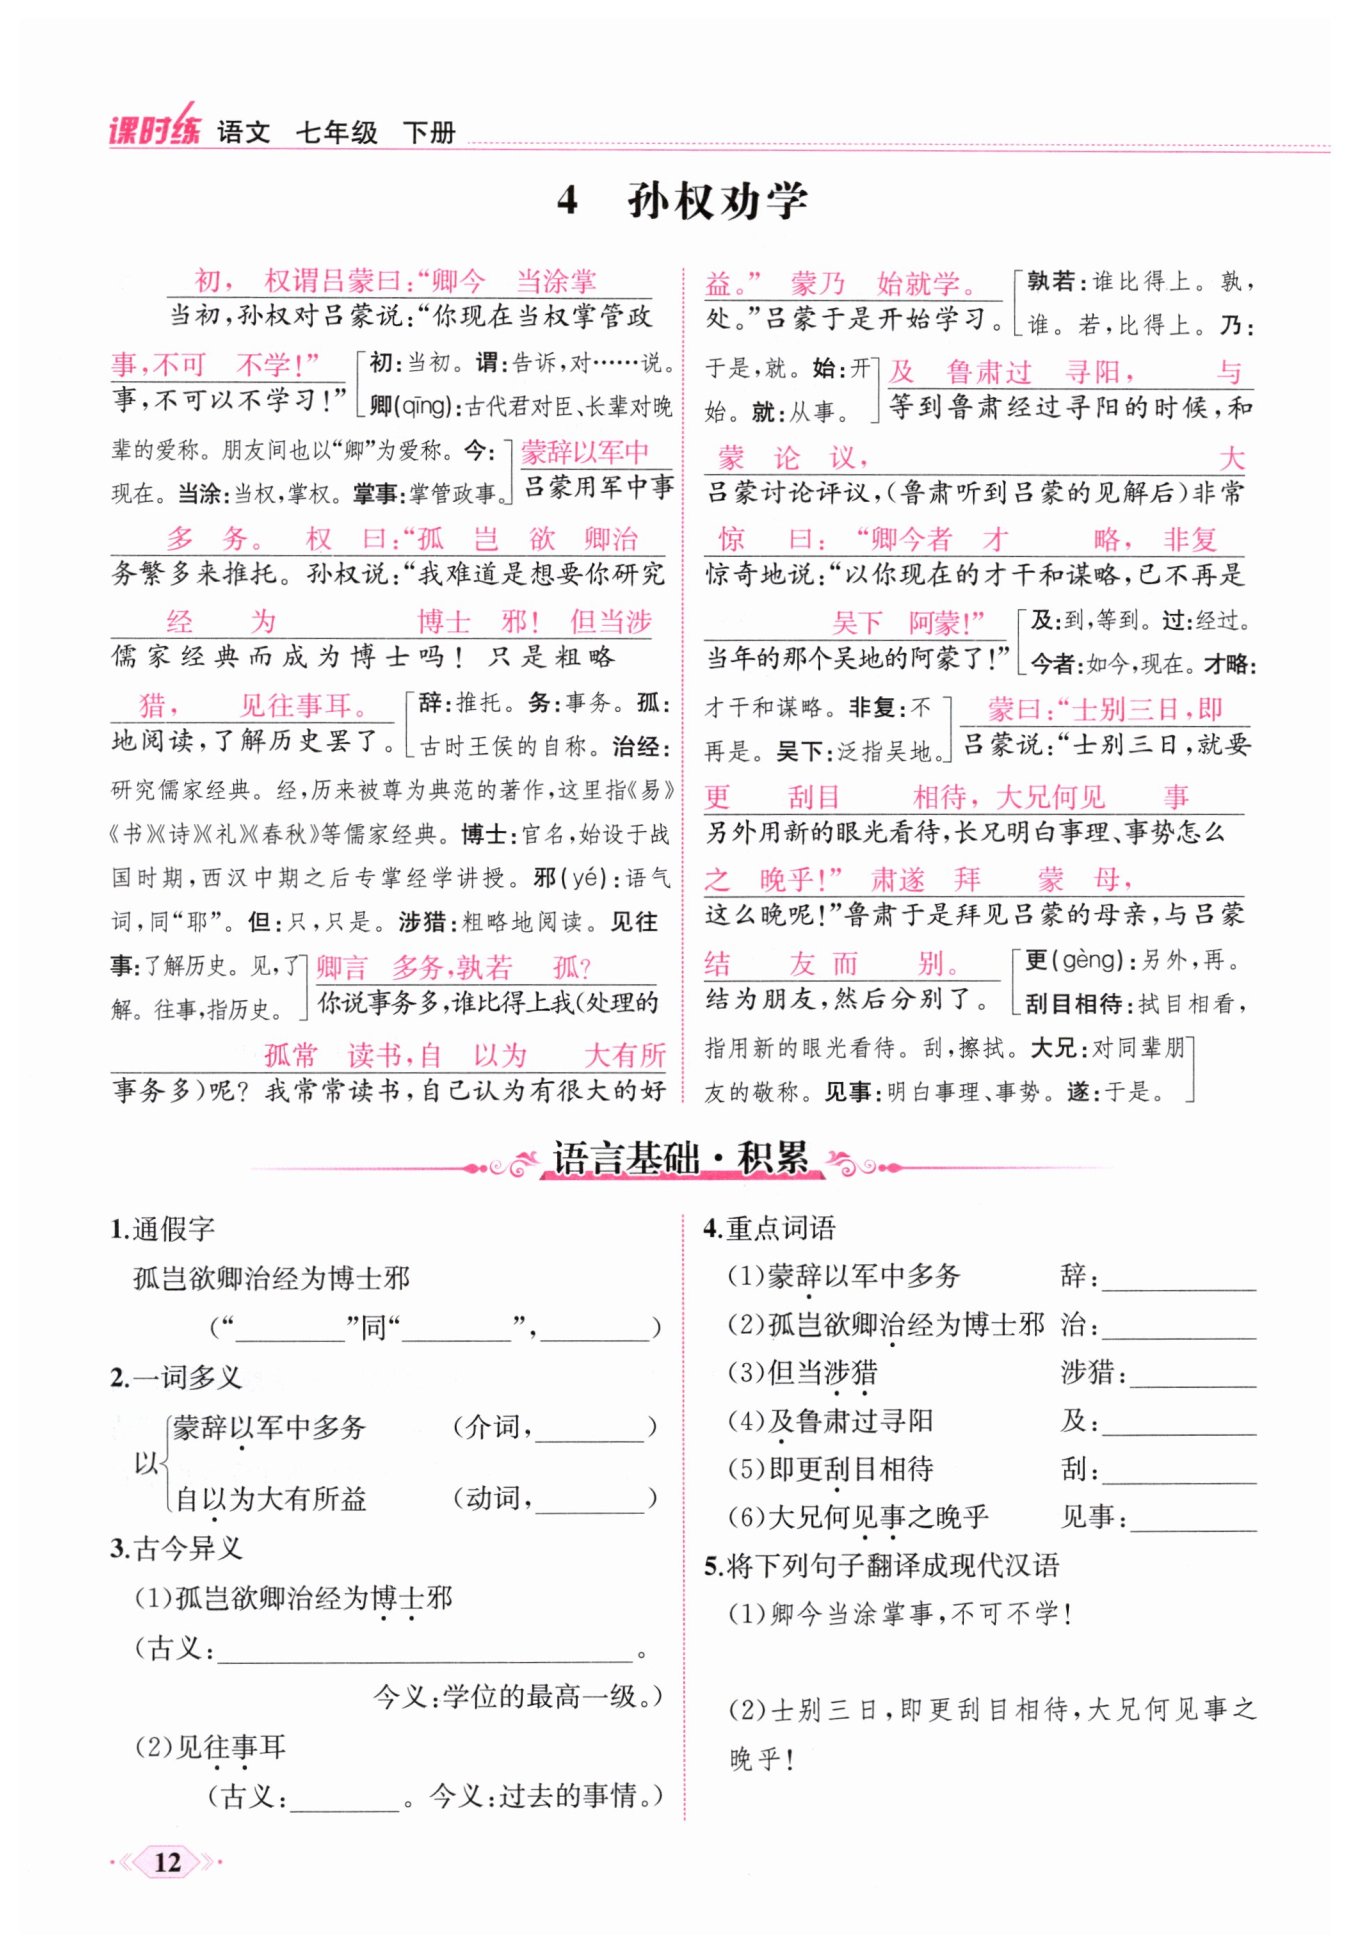 课时练 语文 七年级 下册
4 孙权劝学
初， 权谓吕蒙曰：“卿今 当涂掌
当初，孙权对吕蒙说：“你现在当权掌管政
事，不可 不学！”
事，不可以不学习！”
初：当初。谓：告诉，对……说。
卿(qīng)：古代君对臣、长辈对晚
辈的爱称。朋友间也以“卿”为爱称。今：
现在。当涂：当权，掌权。掌事：掌管政事。
蒙辞以军中
吕蒙用军中事
多 务。 权 曰：“孤 岂 欲 卿治
务繁多来推托。孙权说：“我难道是想要你研究
经 为 博士 邪！ 但当涉
儒家经典而成为博士吗！ 只是粗略
猎， 见往事耳。
地阅读，了解历史罢了。
辞：推托。务：事务。孤：
古时王侯的自称。治经：
研究儒家经典。经，历来被尊为典范的著作，这里指《易》
《书》《诗》《礼》《春秋》等儒家经典。博士：官名，始设于战
国时期，西汉中期之后专掌经学讲授。邪(yé)：语气
词，同“耶”。但：只，只是。涉猎：粗略地阅读。见往
事：了解历史。见，了
解。往事，指历史。
卿言 多务，孰若 孤？
你说事务多，谁比得上我(处理的
孤常 读书，自 以为 大有所
事务多)呢？我常常读书，自己认为有很大的好
益。” 蒙乃 始就学。
处。”吕蒙于是开始学习。
孰若：谁比得上。孰，
谁。若，比得上。乃：
于是，就。始：开
始。就：从事。
及 鲁肃过 寻阳， 与
等到鲁肃经过寻阳的时候，和
蒙 论 议， 大
吕蒙讨论评议，(鲁肃听到吕蒙的见解后)非常
惊 曰： “卿今者 才 略， 非复
惊奇地说：“以你现在的才干和谋略，已不再是
吴下 阿蒙！”
当年的那个吴地的阿蒙了！”
及：到，等到。过：经过。
今者：如今，现在。才略：
才干和谋略。非复：不
再是。吴下：泛指吴地。
蒙曰：“士别三日，即
吕蒙说：“士别三日，就要
更 刮目 相待，大兄何见 事
另外用新的眼光看待，长兄明白事理、事势怎么
之 晚乎！” 肃遂 拜 蒙 母，
这么晚呢！”鲁肃于是拜见吕蒙的母亲，与吕蒙
结 友 而 别。
结为朋友，然后分别了。
更(gèng)：另外，再。
刮目相待：拭目相看，
指用新的眼光看待。刮，擦拭。大兄：对同辈朋
友的敬称。见事：明白事理、事势。遂：于是。
语言基础·积累
1.通假字
孤岂欲卿治经为博士邪
(“________”同“________”,________)
2.一词多义
以
蒙辞以军中多务 (介词,________)
自以为大有所益 (动词,________)
3.古今异义
(1)孤岂欲卿治经为博士邪
(古义：______________________________。
今义：学位的最高一级。)
(2)见往事耳
(古义：________。今义：过去的事情。)
4.重点词语
(1)蒙辞以军中多务 辞：____________
(2)孤岂欲卿治经为博士邪 治：____________
(3)但当涉猎 涉猎：__________
(4)及鲁肃过寻阳 及：____________
(5)即更刮目相待 刮：____________
(6)大兄何见事之晚乎 见事：__________
5.将下列句子翻译成现代汉语
(1)卿今当涂掌事，不可不学！
(2)士别三日，即更刮目相待，大兄何见事之
晚乎！
12